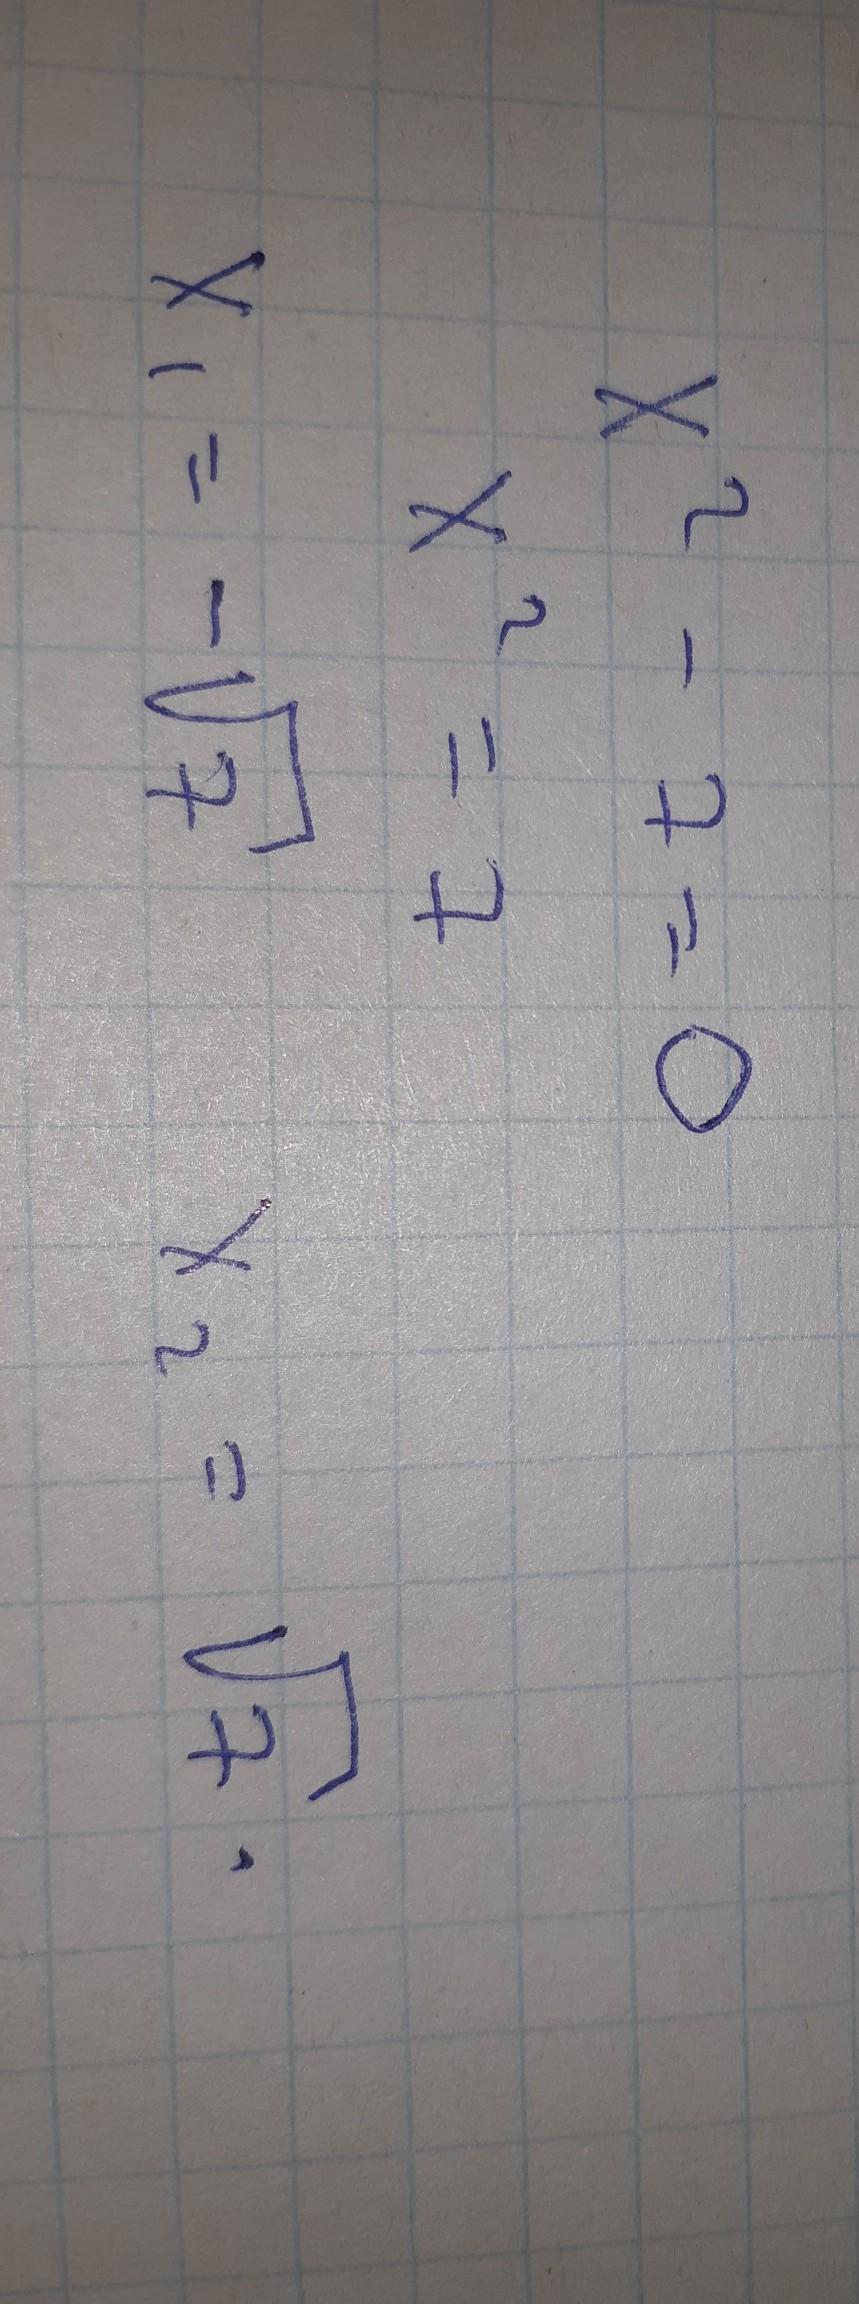 x² - 7 = 0
x² = 7
x₁ = -√7 x₂ = √7.